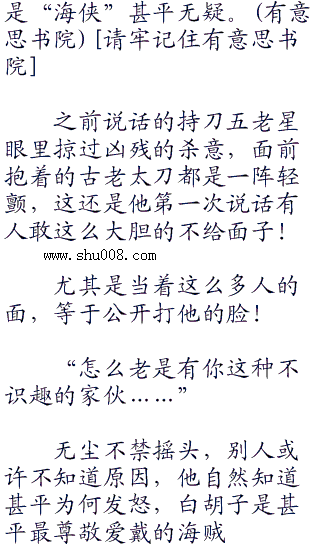 是“海侠”甚平无疑。(有意
思书院) [请牢记住有意思书
院]
之前说话的持刀五老星
眼里掠过凶残的杀意，面前
抱着的古老太刀都是一阵轻
颤，这还是他第一次说话有
人敢这么大胆的不给面子！
www.shu008.com
尤其是当着这么多人的
面，等于公开打他的脸！
“怎么老是有你这种不
识趣的家伙……”
无尘不禁摇头，别人或
许不知道原因，他自然知道
甚平为何发怒，白胡子是甚
平最尊敬爱戴的海贼